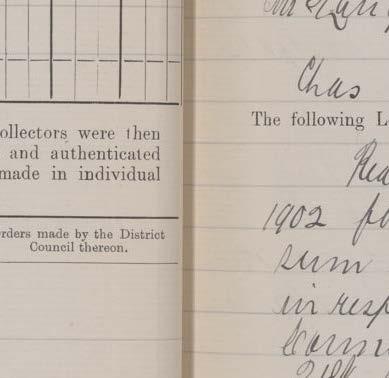 ollectors were then
and authenticated
made in individual
rders made by the District
Council thereon.
Chas
The following L
Rea
1902 fo
sum
in resp